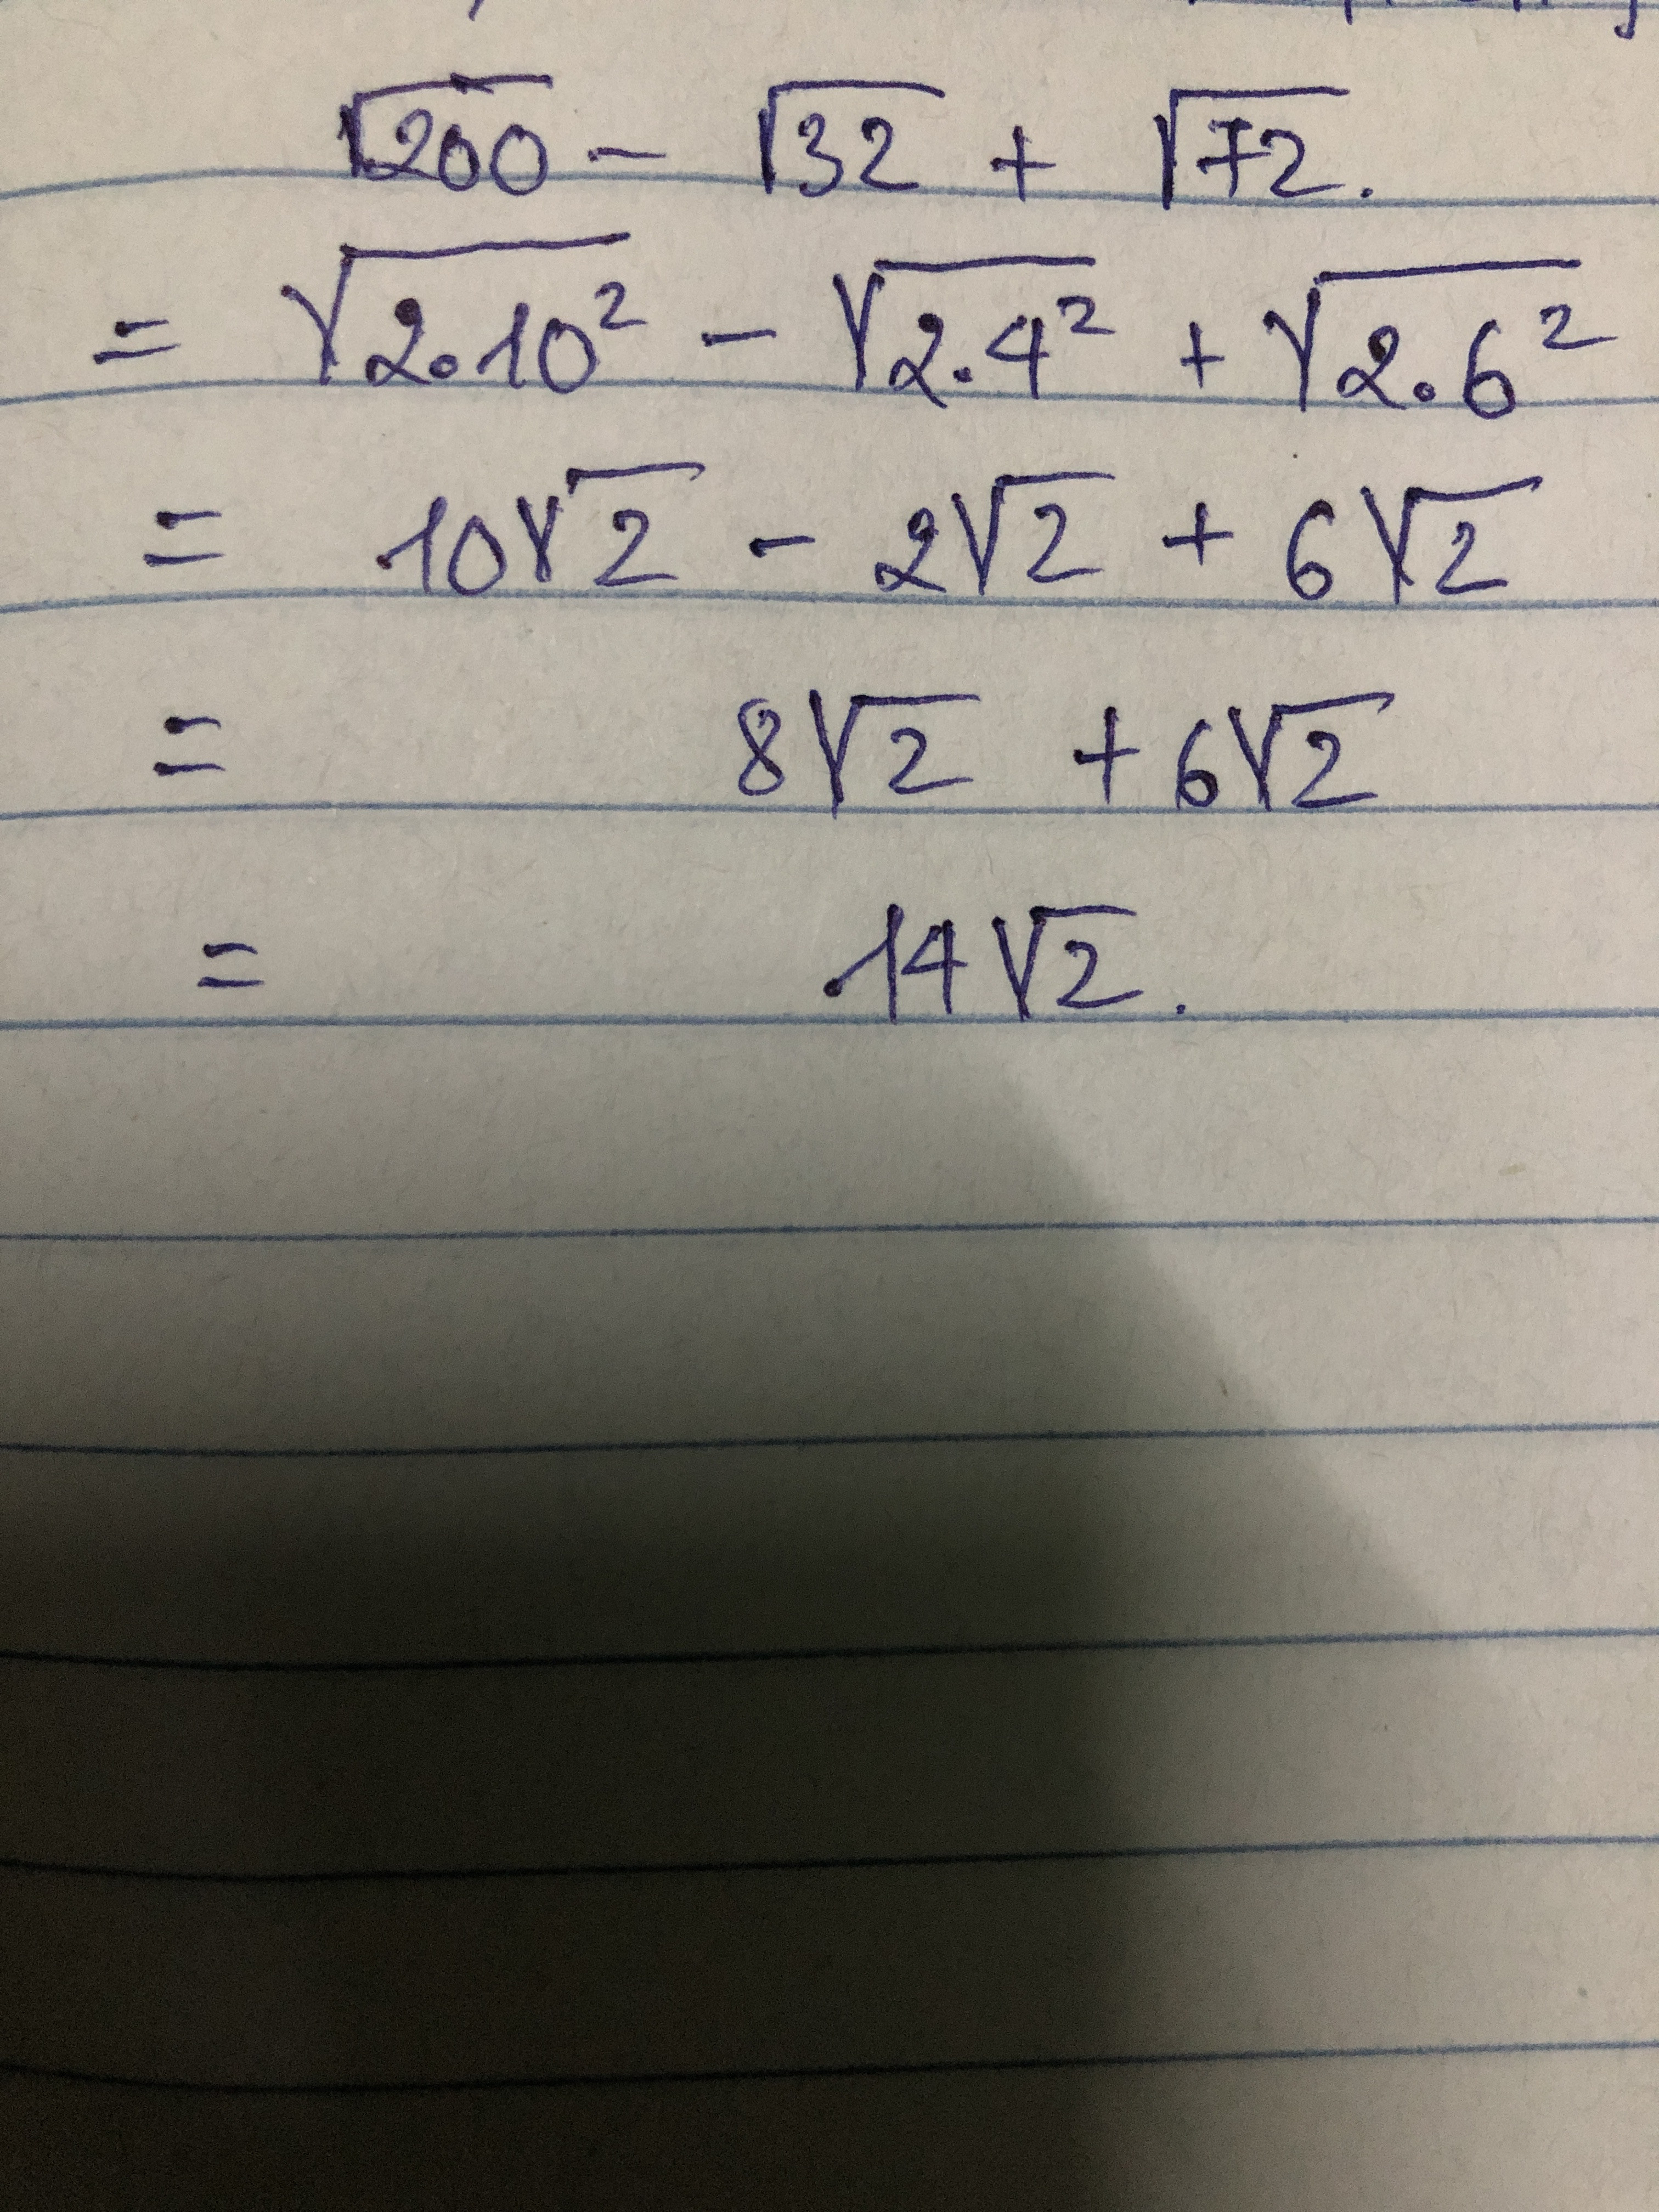 √200 - √32 + √72.
= √2.10² - √2.4² + √2.6²
= 10√2 - 2√2 + 6√2
= 8√2 + 6√2
= 14√2.